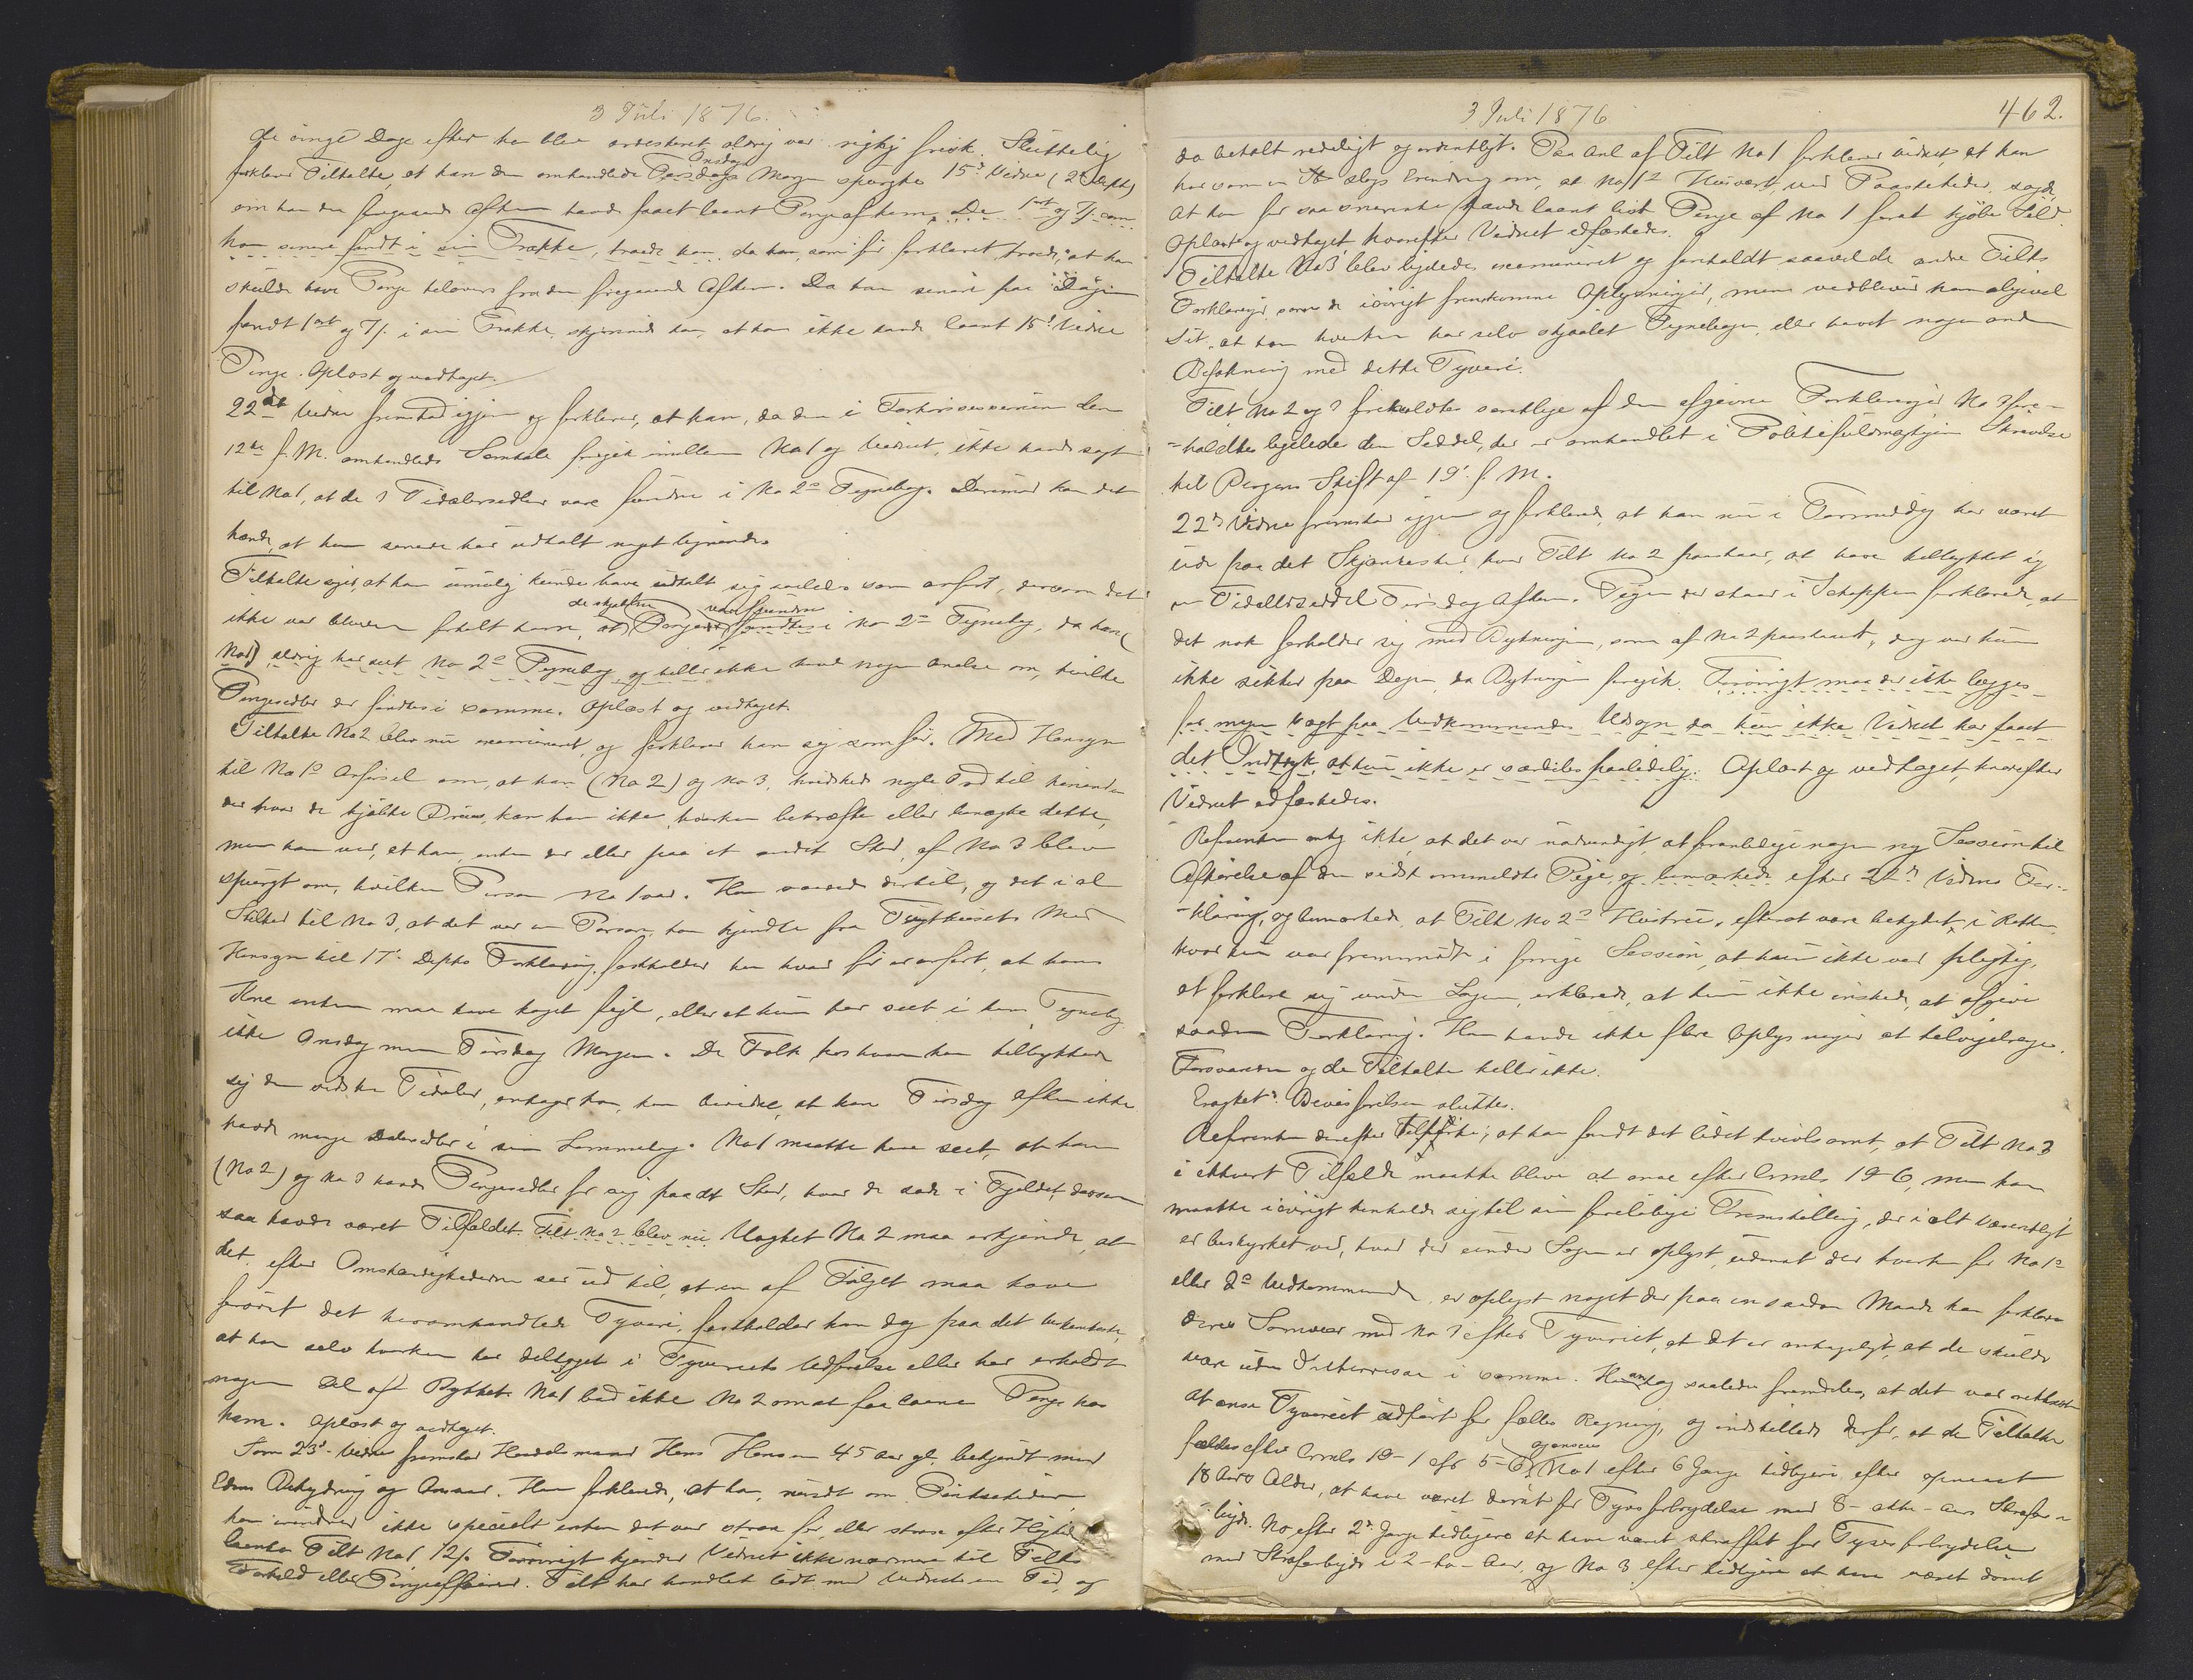 3 Juli 1876.
de övrige Dage efter han blev arresteret aldrig var rigtig frisk. Sluttelig
forklarer Tiltalte, at han den omhandlede Onsdags Morgen spurgte 15de Vidne (2 Depts)
om han den foregaaende Aften havde faaet laant Penge af ham. De 1ort og 7/ som
han senere fandt i sin Frakke, troede han, da han, som før forklaret, troede, at han
skulde have Penge tilovers fra den foregaaende Aften. Da han senere paa Dagen
fandt 1ort og 7/ i sin Frakke, skjønnede han, at han ikke havde laant 15de Vidne
Penge. Oplæst og vedtaget.
22de Vidne fremstod igjen og forklarer, at han, da den i Forhörssessionen den
12te f. M. omhandlede Samtale foregik imellem No 1 og Vidnet, ikke havde sagt
til No 1, at de 3 Tidalersedler vare fundne i No 2s Tegnebog. Derimod kan det
hænde, at han senere har udtalt noget lignende.
Tiltalte siger, at han umulig kunde have udtalt sig saaledes som anført, dersom det
ikke var bleven fortalt ham, at de stjaalne Penge var fundne i No 2s Tegnebog, da han
No 1) aldrig har seet No 2s Tegnebog og heller ikke havde nogen Anelse om, hvilke
Pengesedler der fandtes i samme. Oplæst og vedtaget.
Tiltalte No 2 blev nu examineret, og forklarer han sig som før. Med Hensyn
til No 1s Anførsel om, at han (No 2) og No 3, hviskede nogle Ord til hinanden
der hvor de kjøbte Druer, kan han ikke hverken bekræfte eller benægte dette,
men han ved, at han, enten der eller paa et andet Sted, af No 3 blev
spurgt om, hvilken Person No 1 var. Han svarede dertil, og det i al
Stilhed til No 3, at det var en Person, han kjendte fra Tugthuset. Med
Hensyn til 17de Depts Forklaring, fastholder han hvad før er anført, at hans
Kone enten maa have taget fejl, eller at hun har seet i hans Tegnebog
ikke Onsdag men Tirsdag Morgen. De Folk, hos hvem han tilbyttede
sig den vidste Tidaler, antager han, kan bevidne, at han Tirsdag Aften ikke
havde mange Dalersedler i sin Lommebog. No 1 maatte have seet, at han
(No 2) og No 3 havde Pengesedler for sig paa det Sted, hvor de sade i Fjeldet, dersom
saa havde været Tilfældet. Tilt. No 2 blev nu Uagtet No 2 maa erkjende, at
det efter Omstændighederne ser ud til, at en af Følget maa have
forøvet det heromhandlede Tyveri, fastholder han dog paa det bestemteste,
at han selv hverken har deltaget i Tyveriets Udførelse eller har erholdt
nogen Del af Byttet. No 1 bad ikke No 2 om at faa laane Penge hos
ham. Oplæst og vedtaget.
Som 23de Vidne fremstod Handelsmand Hans Hansen 45 Aar gl, bekjendt med
Edens Betydning og Ansvar. Han forklarede, at han, nærdt om Pintsetider,
han erindrer ikke specielt enten det var strax før eller strax efter Højtid
laante Tilt No 1 12/. Forøvrigt kjender Vidnet ikke nærmere til Tilts
Forhold eller Pengeaffairer. Tilt har handlet lidt med Vidnet en Tid, og
3 Juli 1876
462.
da betalt redeligt og ordentligt. Paa Anl. af Tilt No 1 forklarer Vidnet, at han
har som en Slags Erindring om, at No 1s Husvært, ved Paasketider, sagde
at han før saa omtrent havde laant lidt Penge af No 1 forat kjøbe Sild.
Oplæst og vedtaget hvorefter Vidnet edfæstedes.
Tiltalte No 3 blev ligeledes examineret og foreholdt saavel de andre Tilts
Forklaringer, som de iøvrigt fremkomne Oplysninger, men vedbliver han alligevel
Sit, at han hverken har selv stjaalet Tegnebogen, eller havt nogen anden
Befatning med dette Tyveri.
Tilt No 2 og 3 foreholdtes samtlige af dem afgivne Forklaringer No 3 fore-
=holdtes ligeledes den Seddel, der er omhandlet i Politifuldmægtigens Skrivelse
til Bergens Stift af 19' f. M.
22de Vidne fremstod igjen og forklarede, at han nu i Formiddag har været
ude paa det Skjænkested hvor Tilt No 2 paastaar, at have tilbyttet sig
en Tidalerseddel Tirsdag Aften. Pigen der staar i Schappen forklarede, at
det nok forholder sig med Bytningen, som af No 2 paastaaet, dog var hun
ikke sikker paa Dagen, da Bytningen foregik. Forøvrigt maa der ikke lægges
for megen Vægt paa Vedkommendes Udsagn da hun ikke Vidnet har faaet
det Indtryk, at hun ikke er særdeles paalidelig. Oplæst og vedtaget, hvorefter
Vidnet edfæstedes.
Referenten antog ikke, at det var nødvendigt, at foranledige nogen ny Session til
Afhørelse af den sidst ommeldte Pige, og bemærkede efter 22de Vidnes For-
-klaring, og bemærkede, at Tilt No 2s Hustru, efterat være betydet, i Retten
hvor hun var fremmødt i forrige Session, at hun ikke var pligtig,
at forklare sig under Sagen, erklærede, at hun ikke ønskede, at afgive
saadan Forklaring. Han havde ikke flere Oplysninger at tilvejebringe.
Forsvareren og de Tiltalte heller ikke.
Eragtet: Bevisførelsen sluttes.
Referenten derefter tilførte, at han fandt det lidet tvivlsomt, at Tilt No 3
i ethvert Tilfælde maatte blive at anse efter Crmls 19-6, men han
maatte iøvrigt henholde sig til sin foreløbige Fremstilling, der i alt Væsentligt
er bestyrket ved, hvad der under Sagen er oplyst, udenat der hverken for No 1s
eller 2s Vedkommende, er oplyst noget der paa en saadan Maade kan forklare
deres Samvær med No 3 efter Tyveriet, at det er antageligt, at de skulde
være uden Interesse i samme. Han antog saaledes fremdeles, at det var rettest
at anse Tyveriet udført for fælles Regning, og indstillede derfor, at de Tiltalte
fældes efter Crmls 19-1 cfr 5-6, No 1 efter 6 Gange tidligere efter opnaaet
18 Aars Alder, at have været dømt for Tyvsforbrydelse med 8-otte-Aars Strafar-
-beide. No 2 efter 2de Gange tidligere at have været straffet for Tyvsforbrydelse
med Strafarbejde i 2-to-Aar, og No 3 efter tidligere at have været dømt